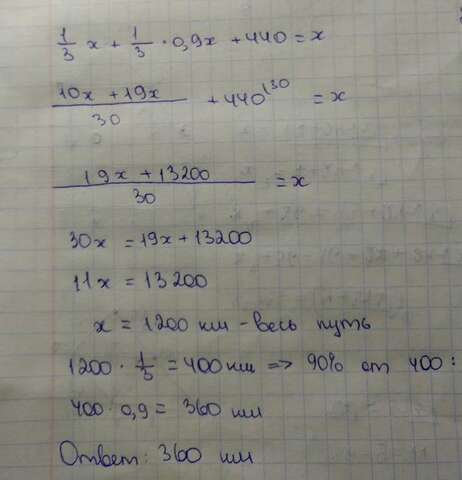 1/3 x + 1/3 · 0,9x + 440 = x
(10x + 19x)/30 + 440^(30 = x
(19x + 13200)/30 = x
30x = 19x + 13200
11x = 13200
x = 1200 км - весь путь
1200 · 1/3 = 400 км => 90% от 400 :
400 · 0,9 = 360 км
Ответ: 360 км